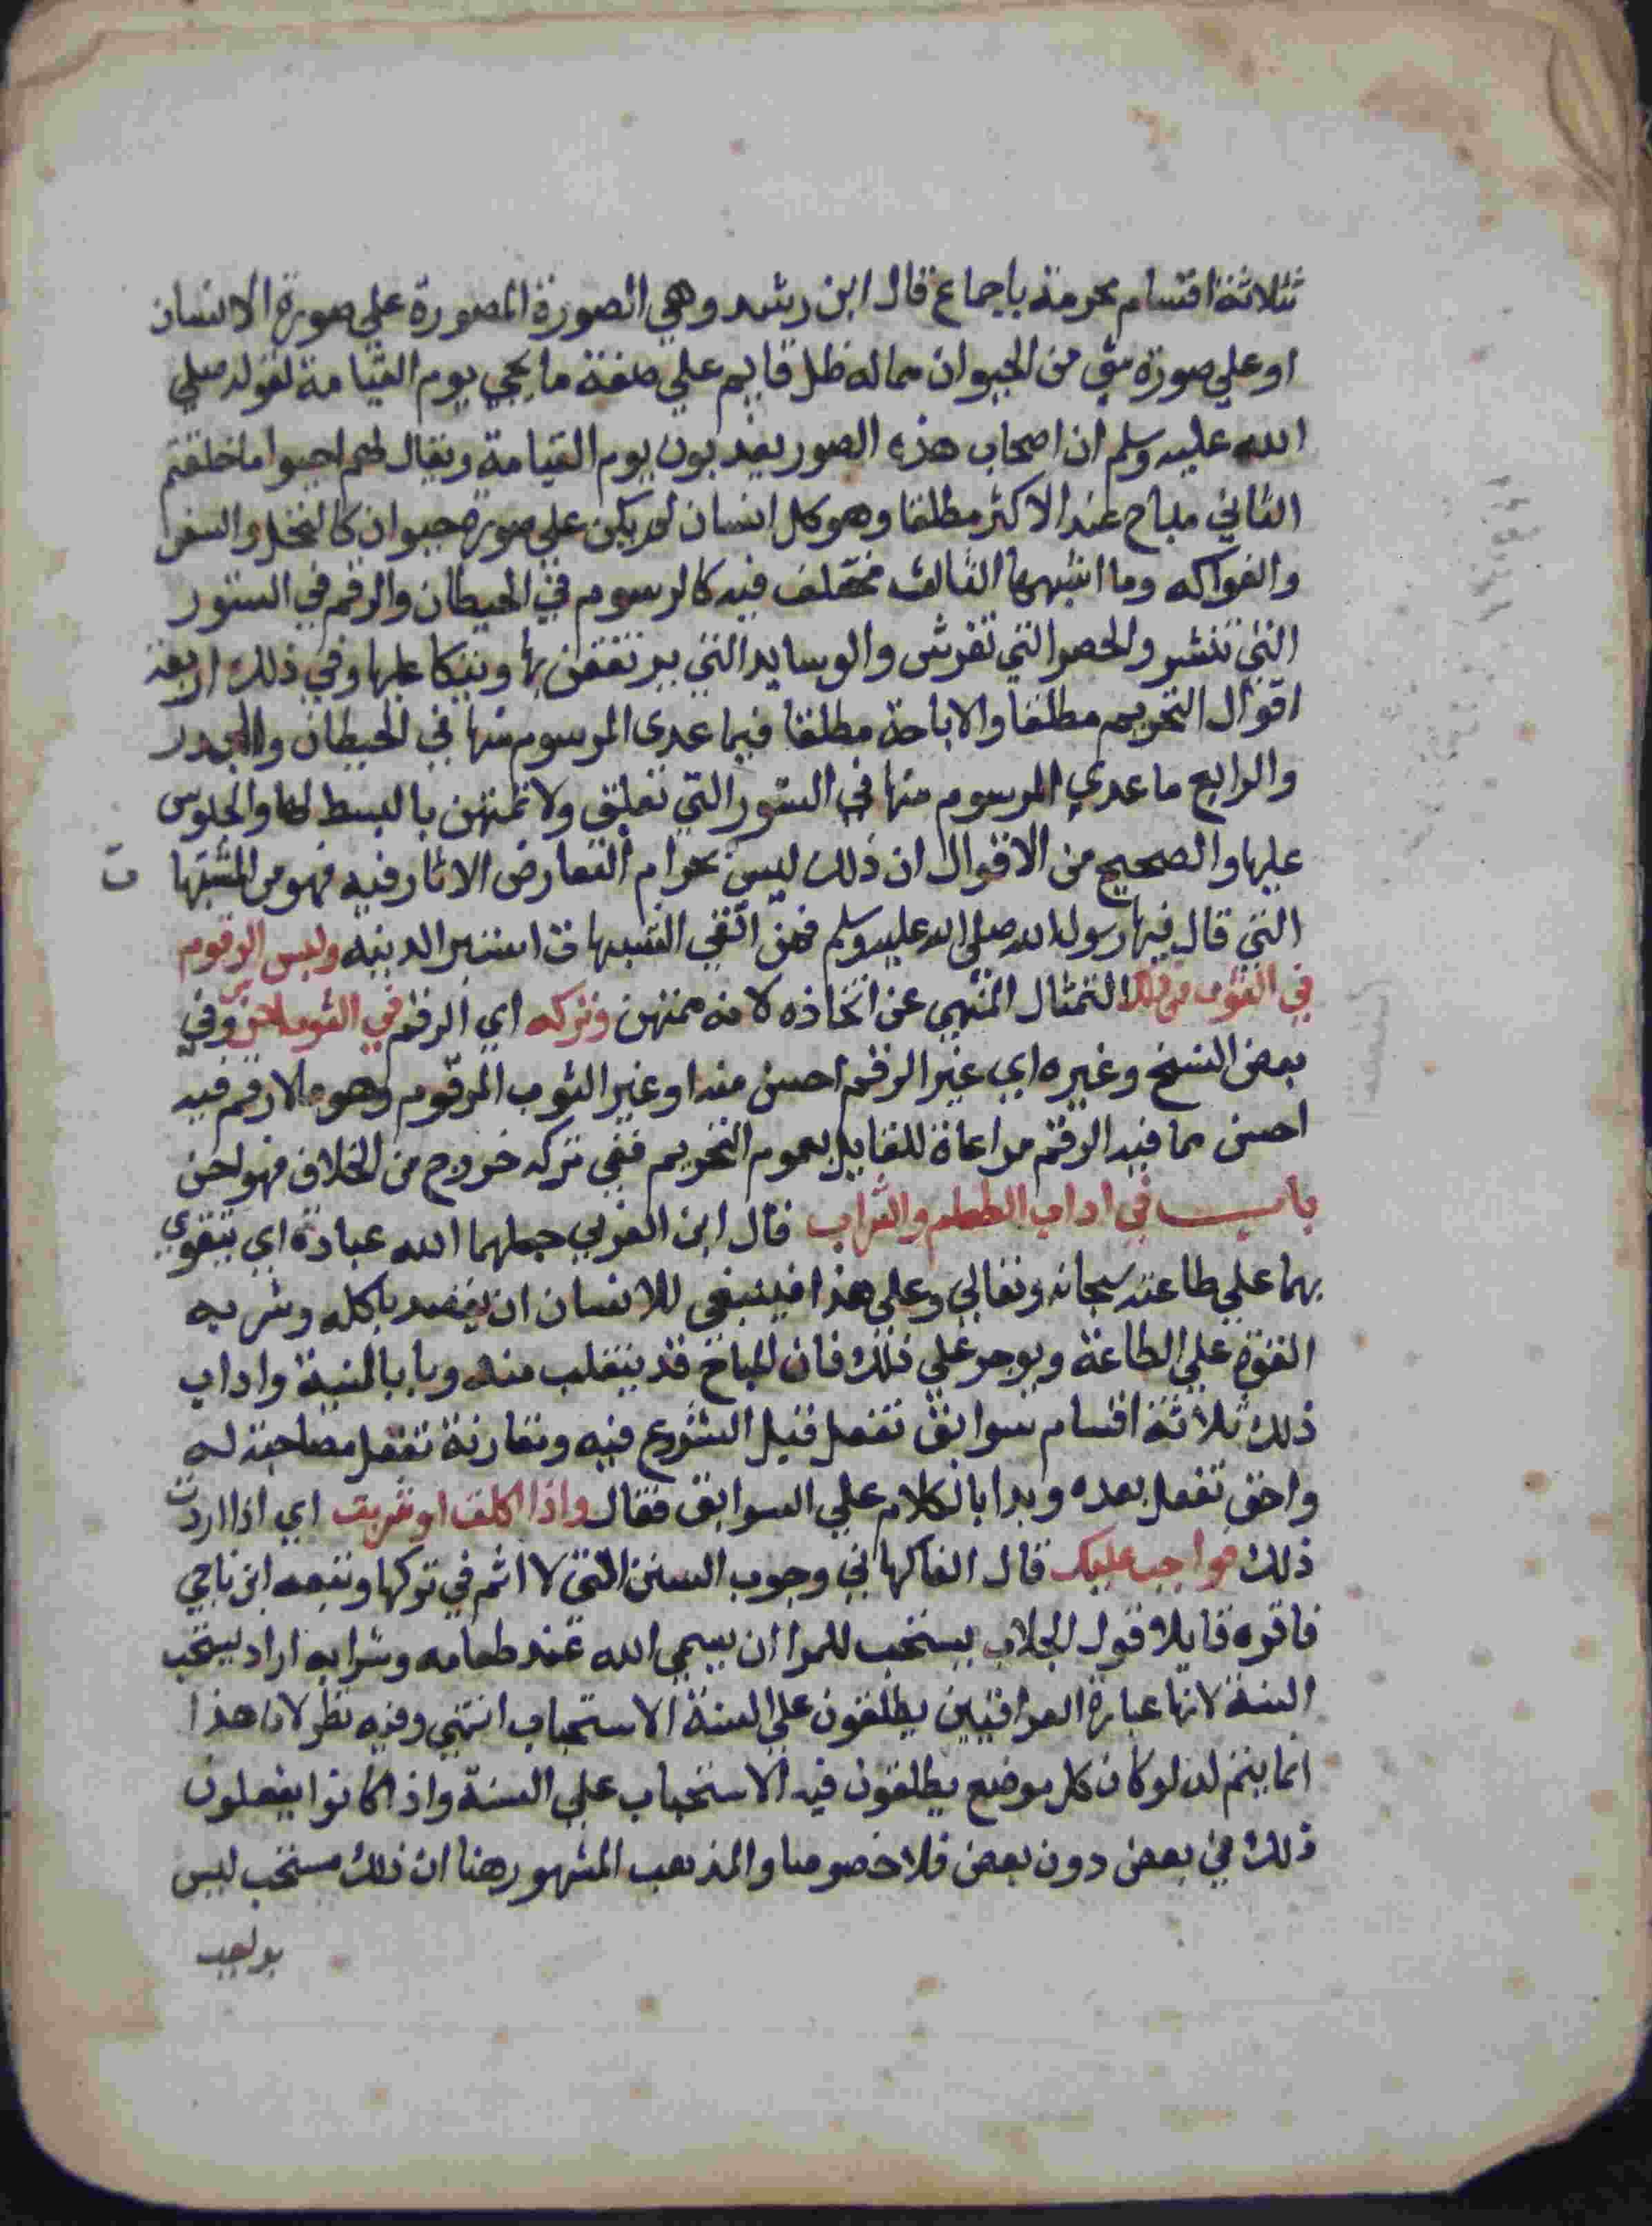 ثلاثة اقسام محرمة باجماع قال ابن رشد وهي الصورة المصورة علي صورة الانسان
او علي صورة شي من الحيوان مما له ظل قايم علي صفة ما يحيي يوم القيامة لقوله صلي
الله عليه وسلم ان اصحاب هذه الصور يعذبون يوم القيامة ويقال لهم احيوا ما خلقتم
الثاني مباح عند الاكثر مطلقا وهو كل انسان لم يكن علي صورة حيوان كالنخل والسفر
والفواكه وما اشبهها الثالث مختلف فيه كالرسوم في الحيطان والرقم في الستور
التي تنشر والحصر التي تفرش والوسايد التي يرتفقن بها ويتكا عليها وفي ذلك اربعة
اقوال التحريم مطلقا والاباحة مطلقا فيما عدي المرسوم منها في الحيطان والجدر
والرابع ما عدي المرسوم منها في الستور التي تعلق ولا تمتهن بالبسط لها والجلوس
عليها والصحيح من الاقوال ان ذلك ليس بحرام التعارض الاثار فيه فهو من المشتبها ت
التي قال فيها رسول الله صلى الله عليه وسلم فمن اتقي الشبهات استبرا لدينه وليس الرقوم
في الثوب من ذلك التمثال المنهي عن اتخاذه لانه ممتهن وتركه اي الرقم في الثوب احسن وفي
بعض النسخ وغيره اي غير الرقم احسن منه او غير الثوب المرقوم وهو ما لا رقم فيه
احسن مما فيه الرقم مراعاة للقايل بعموم التحريم ففي تركه خروج من الخلاف فهو احسن
باب في اداب الطعام والشراب قال ابن العربي جعلهما الله عبادة اي يتقوي
بهما علي طاعته سبحانه وتعالي وعلي هذا فينبغي للانسان ان يقصد باكله وشربه
القوة علي الطاعة ويوجر علي ذلك فان المباح قد ينقلب مندوبا بالنية واداب
ذلك ثلاثة اقسام سوابق تفعل قبل الشروع فيه ومقارنة تفعل مصاحبة له
واحق تفعل بعده وبدا بالكلام علي السوابق فقال واذا اكلت او شربت اي اذا اردت
ذلك فواجب عليك قال الفاكهاني وجوب السنن التي لا اثم في تركها وتبعه ابن ناجي
فاقره قايلا قول الجلاب يستحب للمرا ان يسمي الله عند طعامه وشرابه اراد يستحب
السنة لانها عبارة العراقيين يطلقون علي السنة الاستحباب انتهي وفيه نظر لان هذا
انما يتم له لو كان كل موضع يطلقون فيه الاستحباب علي السنة واذا كانوا يفعلون
ذلك في بعض دون بعض فلا خصوصا والمذهب المشهور هنا ان ذلك مستحب ليس
بواجب